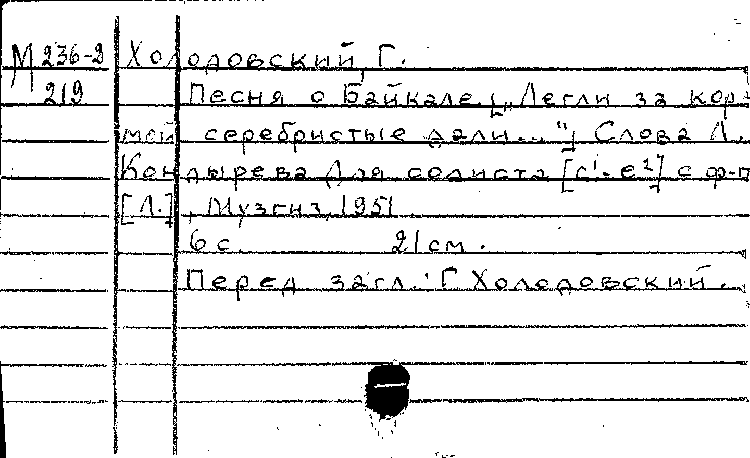 М 236-2 Холодовский, Г.
219 Песня о Байкале. [„Легли за кор-
мой серебристые дали..."] Слова Л.
Кондырева Для солиста [c¹-e²] с ф-п
[Л.], Музгиз, 1951
6 с. 21 см.
Перед загл.: Г Холодовский.